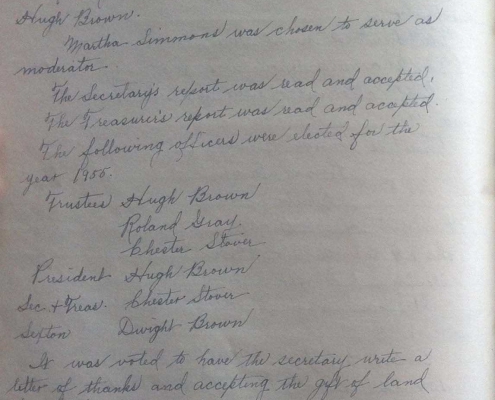 Hugh Brown.
Martha Simmons was chosen to serve as
moderator.
The Secretarys report was read and accepted.
The Treasurer's report was read and accepted.
The following officers were elected for the
year 1956.
Trustees Hugh Brown
Roland Gray.
Chester Stover
President Hugh Brown
Sec. + Treas. Chester Stover
Sexton Dwight Brown
It was voted to have the secretary write a
letter of thanks and accepting the gift of land